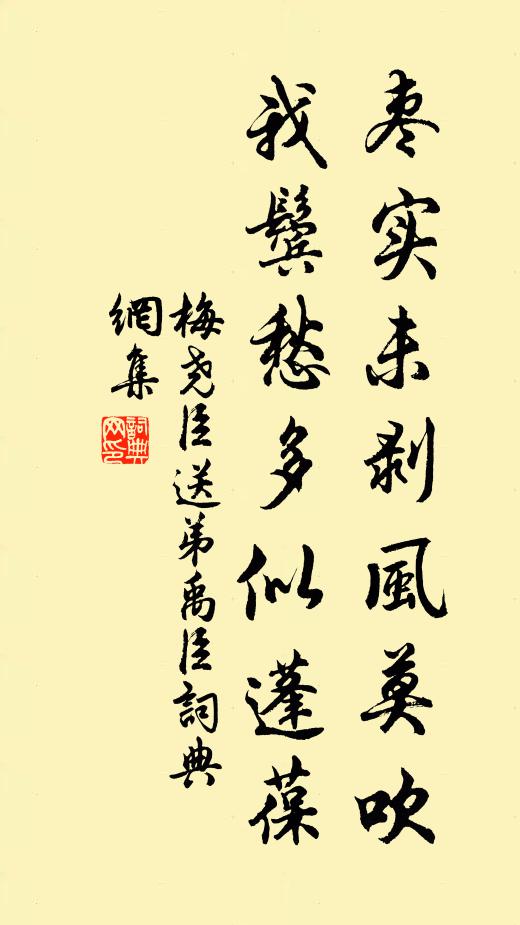 枣实未剥風莫吹
我鬓愁多似蓬葆
梅尧臣送弟禹臣詞典
網集
詞典
网印